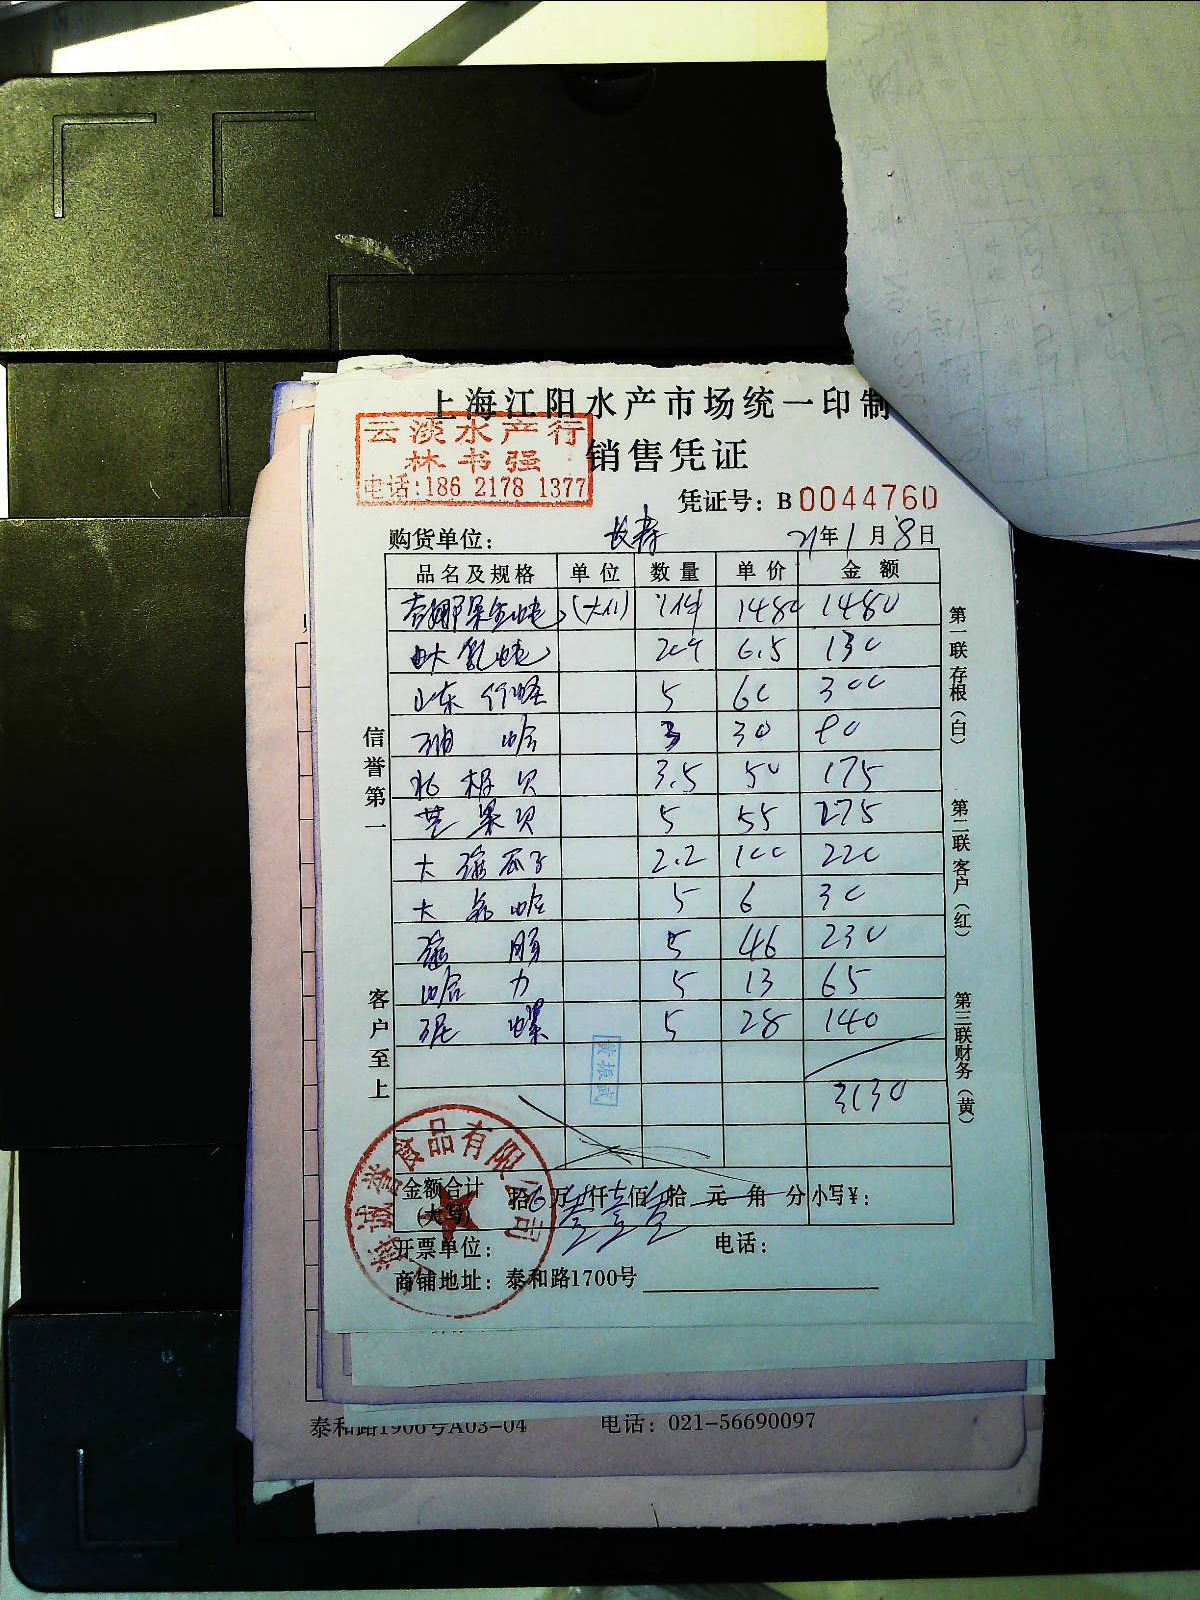 上海江阳水产市场统一印制
云淡水产行
林书强
电话:186 2178 1377
销售凭证
凭证号: B0044760
购货单位: 长寿 21年1月8日
品名及规格 单位 数量 单价 金额
1件 1480 1480
20个 6.5 130
山东 5 60 300
3 30 90
北极贝 3.5 50 175
芒果贝 5 55 275
大海瓜子 2.2 100 220
大 5 6 30
海肠 5 46 230
哈力 5 13 65
泥螺 5 28 140
3130
金额合计(大写) 拾 万 仟 佰 拾 元 角 分 小写¥:
开票单位: 电话:
商铺地址: 泰和路1700号
信誉第一
客户至上
第一联存根(白)
第二联客户(红)
第三联财务(黄)
诚誉食品有限公司
泰和路1906号A03-04 电话: 021-56690097